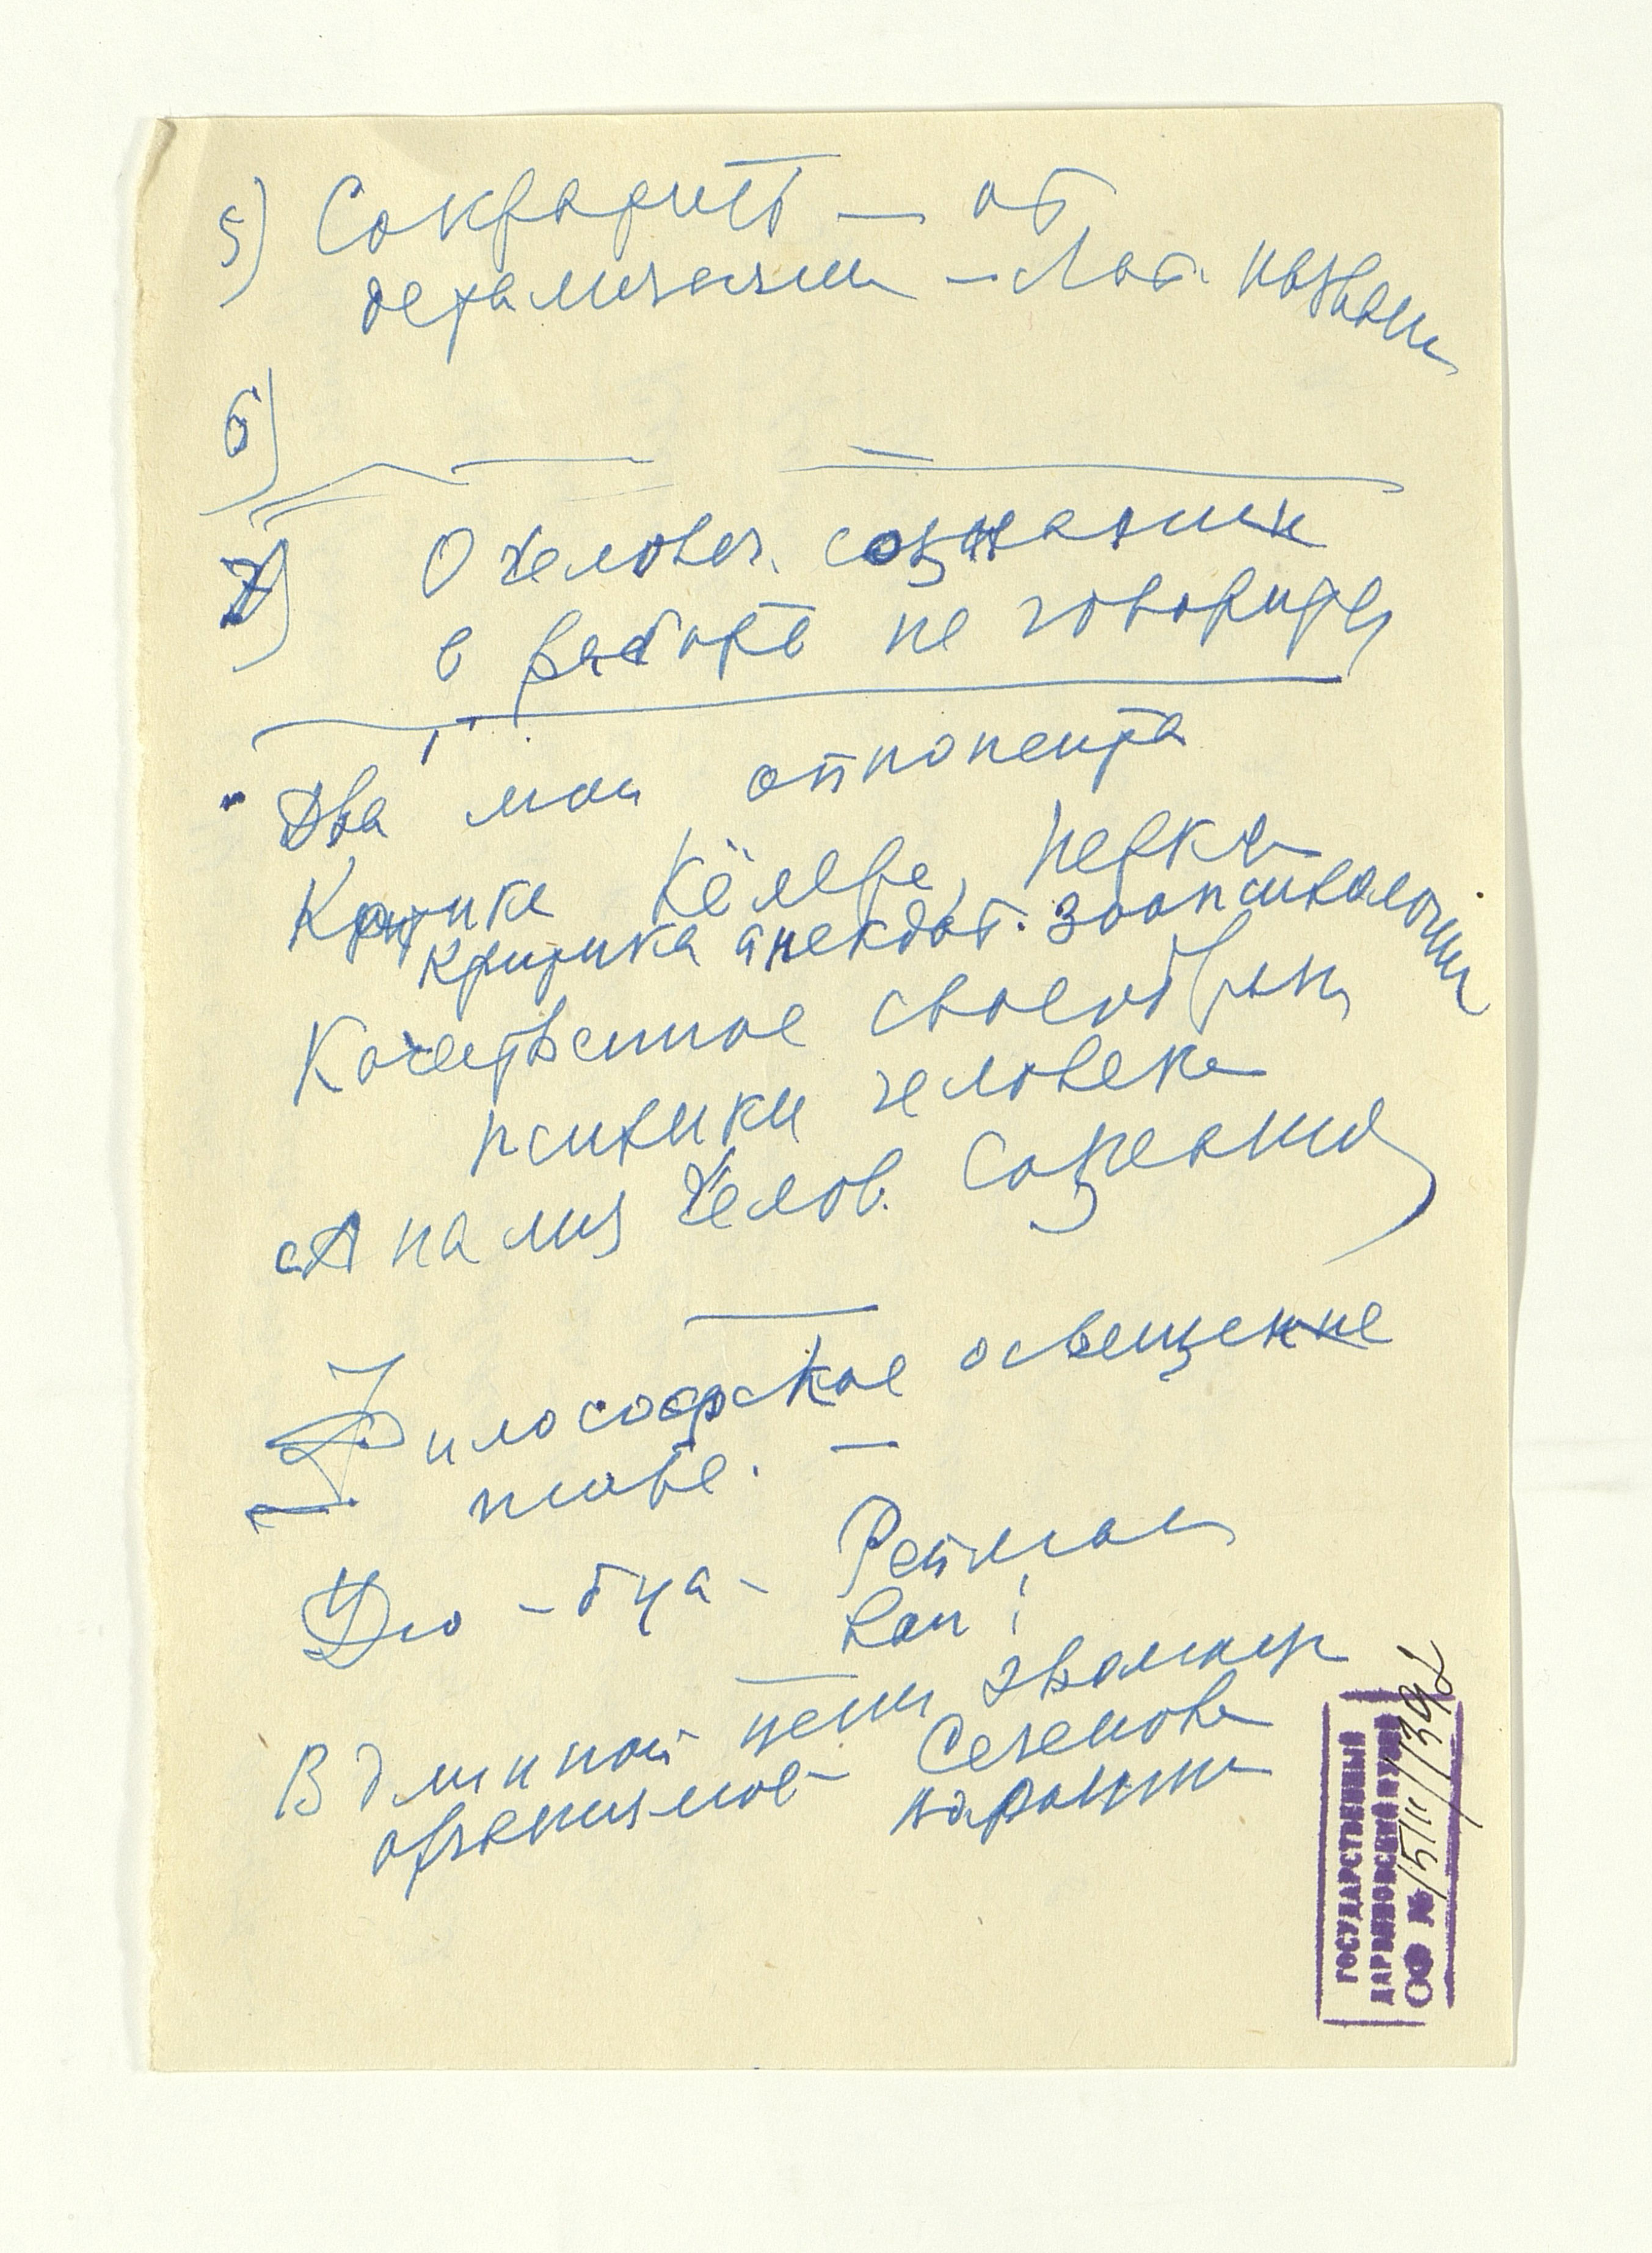 5) Сократить — от
детализации — Лат. назван
6)
7) О человеч. сознании
в работе не говорится
Два мои оппонента
Критика Кёлера, Йеркса
Критика анекдот. зоопсихологии
Качественное своеобраз
психики человека
Анализ Челов. Сознания
Философское освещение
В длинной цепи эволюц
организмов Сеченова
ГОСУДАРСТВЕННЫЙ
ДАРВИНОВСКИЙ МУЗЕЙ
ОФ №